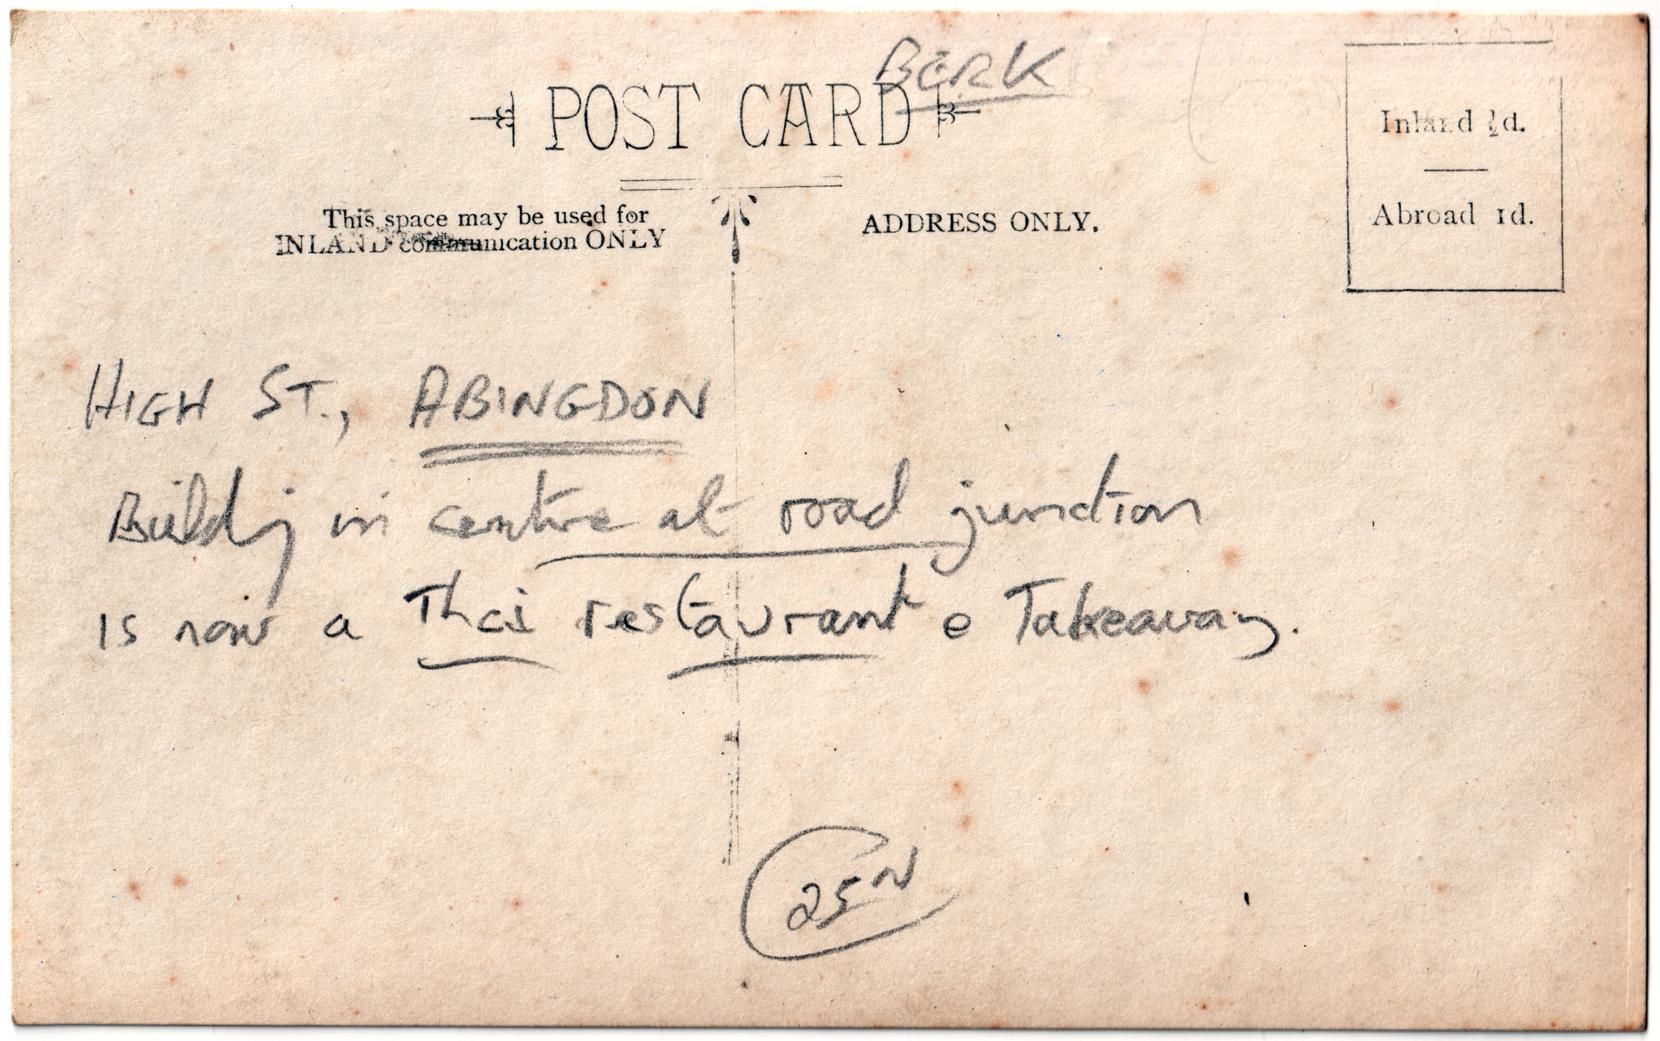 BERK
POST CARD
This space may be used for
INLAND communication ONLY
ADDRESS ONLY.
Inland ½d.
Abroad 1d.
HIGH ST., ABINGDON
Building in centre at road junction
is now a Thai restaurant e Takeaway.
25N